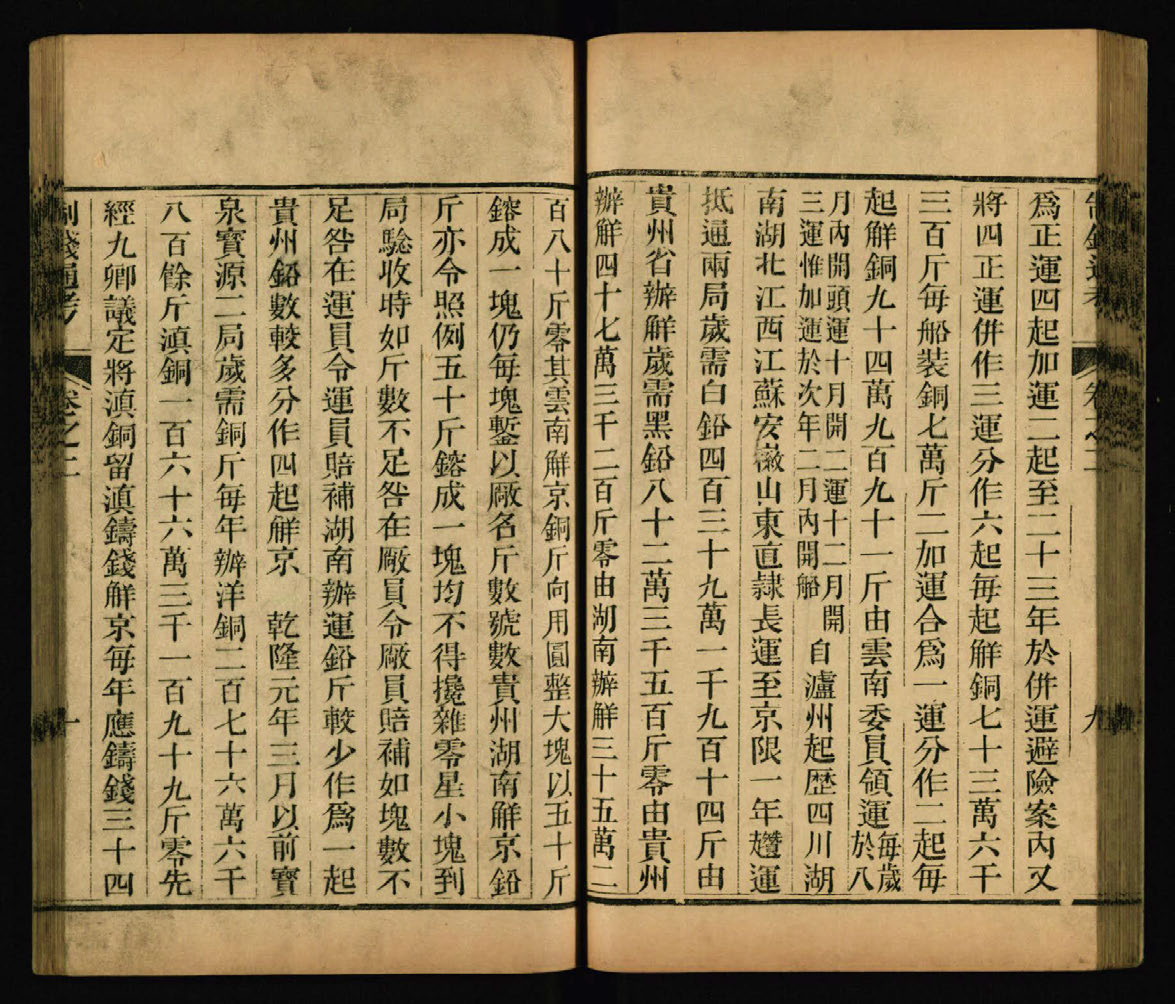 制錢通考 卷之二 九
爲正運四起加運二起至二十三年於併運避險案内又
將四正運併作三運分作六起每起解銅七十三萬六千
三百斤每船装銅七萬斤二加運合爲一運分作二起每
起解銅九十四萬九百九十一斤由雲南委員領運每歲於八
月内開頭運十月開二運十二月開三運惟加運於次年二月内開船 自瀘州起歷四川湖
南湖北江西江蘇安徽山東直隷長運至京限一年趲運
抵通兩局歲需白鉛四百三十九萬一千九百十四斤由
貴州省辦解歲需黑鉛八十二萬三千五百斤零由貴州
辦解四十七萬三千二百斤零由湖南辦解三十五萬二
百八十斤零其雲南解京銅斤向用圓整大塊以五十斤
鎔成一塊仍每塊鏨以廠名斤數號數貴州湖南解京鉛
斤亦令照例五十斤鎔成一塊均不得攙雜零星小塊到
局驗收時如斤數不足咎在廠員令廠員賠補如塊數不
足咎在運員令運員賠補湖南辦運鉛斤較少作爲一起
貴州鉛數較多分作四起解京 乾隆元年三月以前寶
泉寶源二局歲需銅斤每年辦洋銅二百七十六萬六千
八百餘斤滇銅一百六十六萬三千一百九十九斤零先
經九卿議定將滇銅留滇鑄錢解京每年應鑄錢三十四
制錢通考 卷之二 十